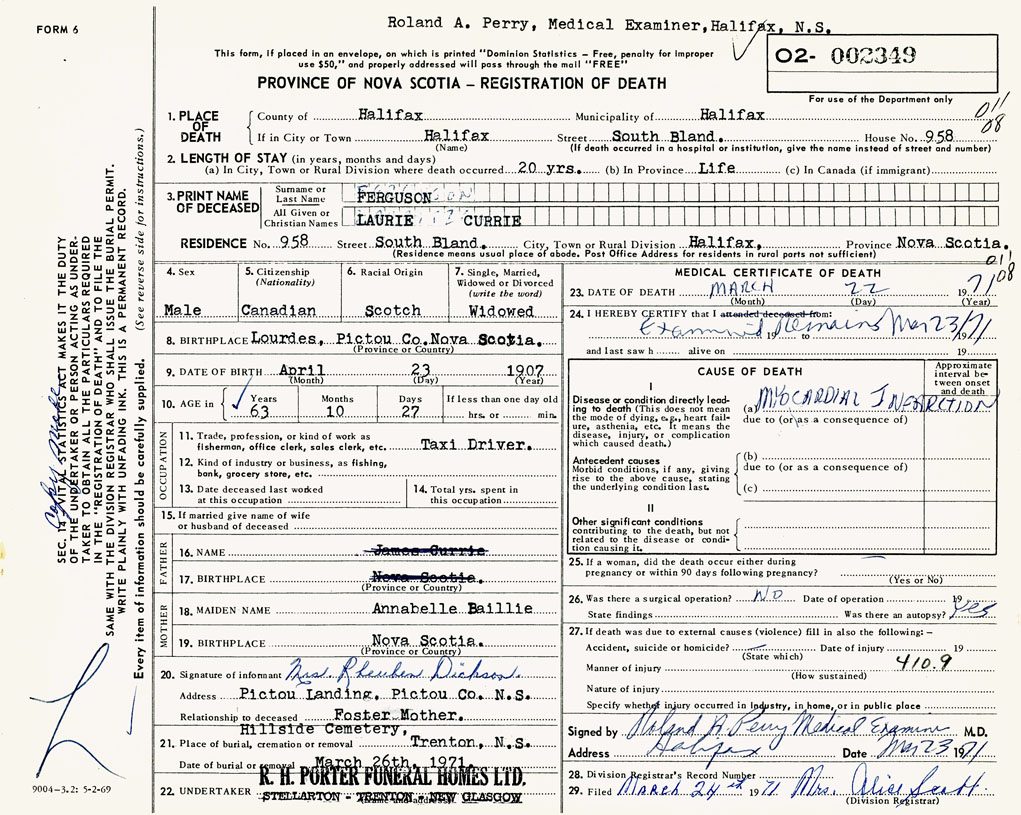 Roland A. Perry, Medical Examiner, Halifax, N.S.
FORM 6
This form, if placed in an envelope, on which is printed "Dominion Statistics – Free, penalty for improper
use $50," and properly addressed will pass through the mail "FREE"
02- 002349
PROVINCE OF NOVA SCOTIA – REGISTRATION OF DEATH
For use of the Department only
011
08
1. PLACE OF DEATH
County of Halifax Municipality of Halifax
If in City or Town Halifax Street South Bland. House No. 958
(Name) (If death occurred in a hospital or institution, give the name instead of street and number)
2. LENGTH OF STAY (in years, months and days)
(a) In City, Town or Rural Division where death occurred 20 yrs. (b) In Province Life (c) In Canada (if immigrant)
3. PRINT NAME OF DECEASED
Surname or Last Name FERGUSON
All Given or Christian Names LAURIE CURRIE
RESIDENCE No. 958 Street South Bland. City, Town or Rural Division Halifax, Province Nova Scotia.
(Residence means usual place of abode. Post Office Address for residents in rural parts not sufficient)
011
08
4. Sex
Male
5. Citizenship (Nationality)
Canadian
6. Racial Origin
Scotch
7. Single, Married, Widowed or Divorced (write the word)
Widowed
8. BIRTHPLACE Lourdes, Pictou Co. Nova Scotia.
(Province or Country)
9. DATE OF BIRTH April 23 1907
(Month) (Day) (Year)
10. AGE in Years Months Days If less than one day old
63 10 27 hrs. or min.
OCCUPATION
11. Trade, profession, or kind of work as
fisherman, office clerk, sales clerk, etc. Taxi Driver.
12. Kind of industry or business, as fishing,
bank, grocery store, etc.
13. Date deceased last worked
at this occupation
14. Total yrs. spent in
this occupation
15. If married give name of wife
or husband of deceased
FATHER
16. NAME James Currie
17. BIRTHPLACE Nova Scotia.
(Province or Country)
MOTHER
18. MAIDEN NAME Annabelle Baillie
19. BIRTHPLACE Nova Scotia.
(Province or Country)
20. Signature of informant Mrs. Rheuben Dickson
Address Pictou Landing, Pictou Co. N.S.
Relationship to deceased Foster Mother.
Hillside Cemetery,
21. Place of burial, cremation or removal Trenton, N.S.
Date of burial or removal March 26th, 1971.
R. H. PORTER FUNERAL HOMES LTD.
22. UNDERTAKER STELLARTON - TRENTON - NEW GLASGOW
(Name and address)
MEDICAL CERTIFICATE OF DEATH
23. DATE OF DEATH MARCH 22 1971
(Month) (Day) (Year)
24. I HEREBY CERTIFY that I attended deceased from:
Examined Remains Mar 23/71
19 to 19
and last saw h alive on 19
CAUSE OF DEATH
Approximate interval between onset and death
I
Disease or condition directly leading to death (This does not mean the mode of dying, e.g., heart failure, asthenia, etc. It means the disease, injury, or complication which caused death.)
(a) MYOCARDIAL INFARCTION
due to (or as a consequence of)
Antecedent causes
Morbid conditions, if any, giving rise to the above cause, stating the underlying condition last.
(b)
due to (or as a consequence of)
(c)
II
Other significant conditions
contributing to the death, but not related to the disease or condition causing it.
25. If a woman, did the death occur either during
pregnancy or within 90 days following pregnancy?
(Yes or No)
26. Was there a surgical operation? NO Date of operation 19
State findings Was there an autopsy? Yes
27. If death was due to external causes (violence) fill in also the following: –
Accident, suicide or homicide? Date of injury 19
(State which) 410.9
Manner of injury
(How sustained)
Nature of injury
Specify whether injury occurred in Industry, in home, or in public place
Signed by Roland A Perry Medical Examiner M.D.
Address Halifax Date Mar 23 1971
28. Division Registrar's Record Number
29. Filed March 24th 1971 Mrs. Alice Scott.
(Division Registrar)
SEC. 14 VITAL STATISTICS ACT MAKES IT THE DUTY
OF THE UNDERTAKER OR PERSON ACTING AS UNDER-
TAKER TO OBTAIN ALL THE PARTICULARS REQUIRED
IN THE "REGISTRATION OF DEATH" AND TO FILE THE
SAME WITH THE DIVISION REGISTRAR WHO SHALL ISSUE THE BURIAL PERMIT.
WRITE PLAINLY WITH UNFADING INK. THIS IS A PERMANENT RECORD.
Every item of information should be carefully supplied. (See reverse side for instructions.)
9004-3.2: 5-2-69